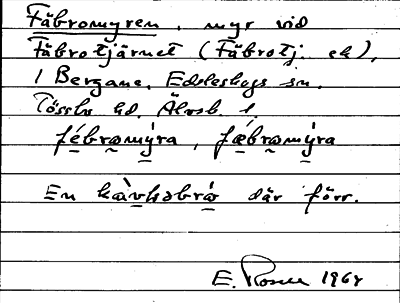 Fäbromyren, myr vid
Fäbrotjärnet (Fäbrotj. ek),
i Bergane, Edsleskogs sn.
Tössbo hd. Älvsb. l.
fébromýra, fæbromýra
En kàvlsbrò där förr.
E. Rosell 1964